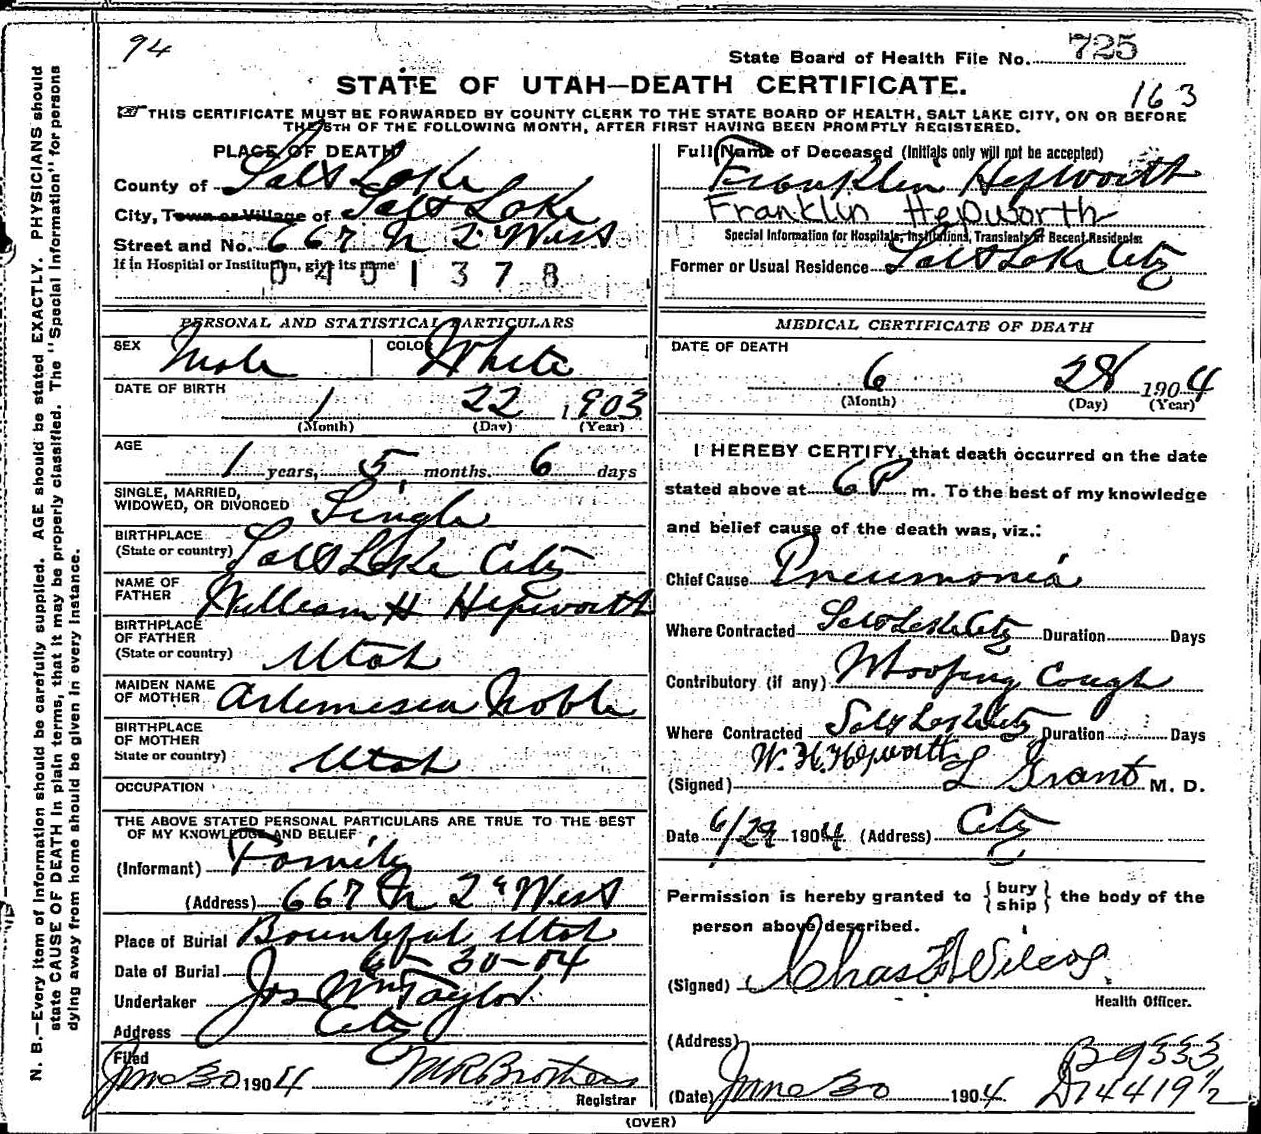 94
State Board of Health File No. 725
STATE OF UTAH—DEATH CERTIFICATE.
163
THIS CERTIFICATE MUST BE FORWARDED BY COUNTY CLERK TO THE STATE BOARD OF HEALTH, SALT LAKE CITY, ON OR BEFORE
THE 5TH OF THE FOLLOWING MONTH, AFTER FIRST HAVING BEEN PROMPTLY REGISTERED.
N. B.—Every item of information should be carefully supplied. AGE should be stated EXACTLY. PHYSICIANS should
state CAUSE OF DEATH in plain terms, that it may be properly classified. The "Special Information" for persons
dying away from home should be given in every instance.
PLACE OF DEATH
County of Salt Lake
City, Town or Village of Salt Lake
Street and No. 667 N 2d West
If in Hospital or Institution, give its name
0401378
PERSONAL AND STATISTICAL PARTICULARS
SEX Male COLOR White
DATE OF BIRTH
1 22 1903
(Month) (Day) (Year)
AGE
1 years, 5 months. 6 days
SINGLE, MARRIED,
WIDOWED, OR DIVORCED Single
BIRTHPLACE
(State or country) Salt Lake City
NAME OF
FATHER William H Hepworth
BIRTHPLACE
OF FATHER
(State or country) Utah
MAIDEN NAME
OF MOTHER Artemesia Noble
BIRTHPLACE
OF MOTHER
State or country) Utah
OCCUPATION
THE ABOVE STATED PERSONAL PARTICULARS ARE TRUE TO THE BEST
OF MY KNOWLEDGE AND BELIEF
(Informant) Family
(Address) 667 N 2d West
Place of Burial Bountiful Utah
Date of Burial 6-30-04
Undertaker Jos Wm Taylor
Address City
Filed
June 30 1904 M R Brothers
Registrar
Full Name of Deceased (Initials only will not be accepted)
Franklin Hepworth
Franklin Hepworth
Special Information for Hospitals, Institutions, Transients or Recent Residents
Former or Usual Residence Salt Lake City
MEDICAL CERTIFICATE OF DEATH
DATE OF DEATH
6 28 1904
(Month) (Day) (Year)
I HEREBY CERTIFY, that death occurred on the date
stated above at 6 P m. To the best of my knowledge
and belief cause of the death was, viz.:
Chief Cause Pneumonia
Where Contracted Salt Lake City Duration Days
Contributory (if any) Whooping Cough
Where Contracted Salt Lake City Duration Days
W. H. Hepworth
(Signed) L Grant M. D.
Date 6/29 1904 (Address) City
Permission is hereby granted to { bury ship } the body of the
person above described.
(Signed) Chas F Wilcox
Health Officer.
(Address)
B 9333
(Date) June 30 1904 D 14419 1/2
(OVER)